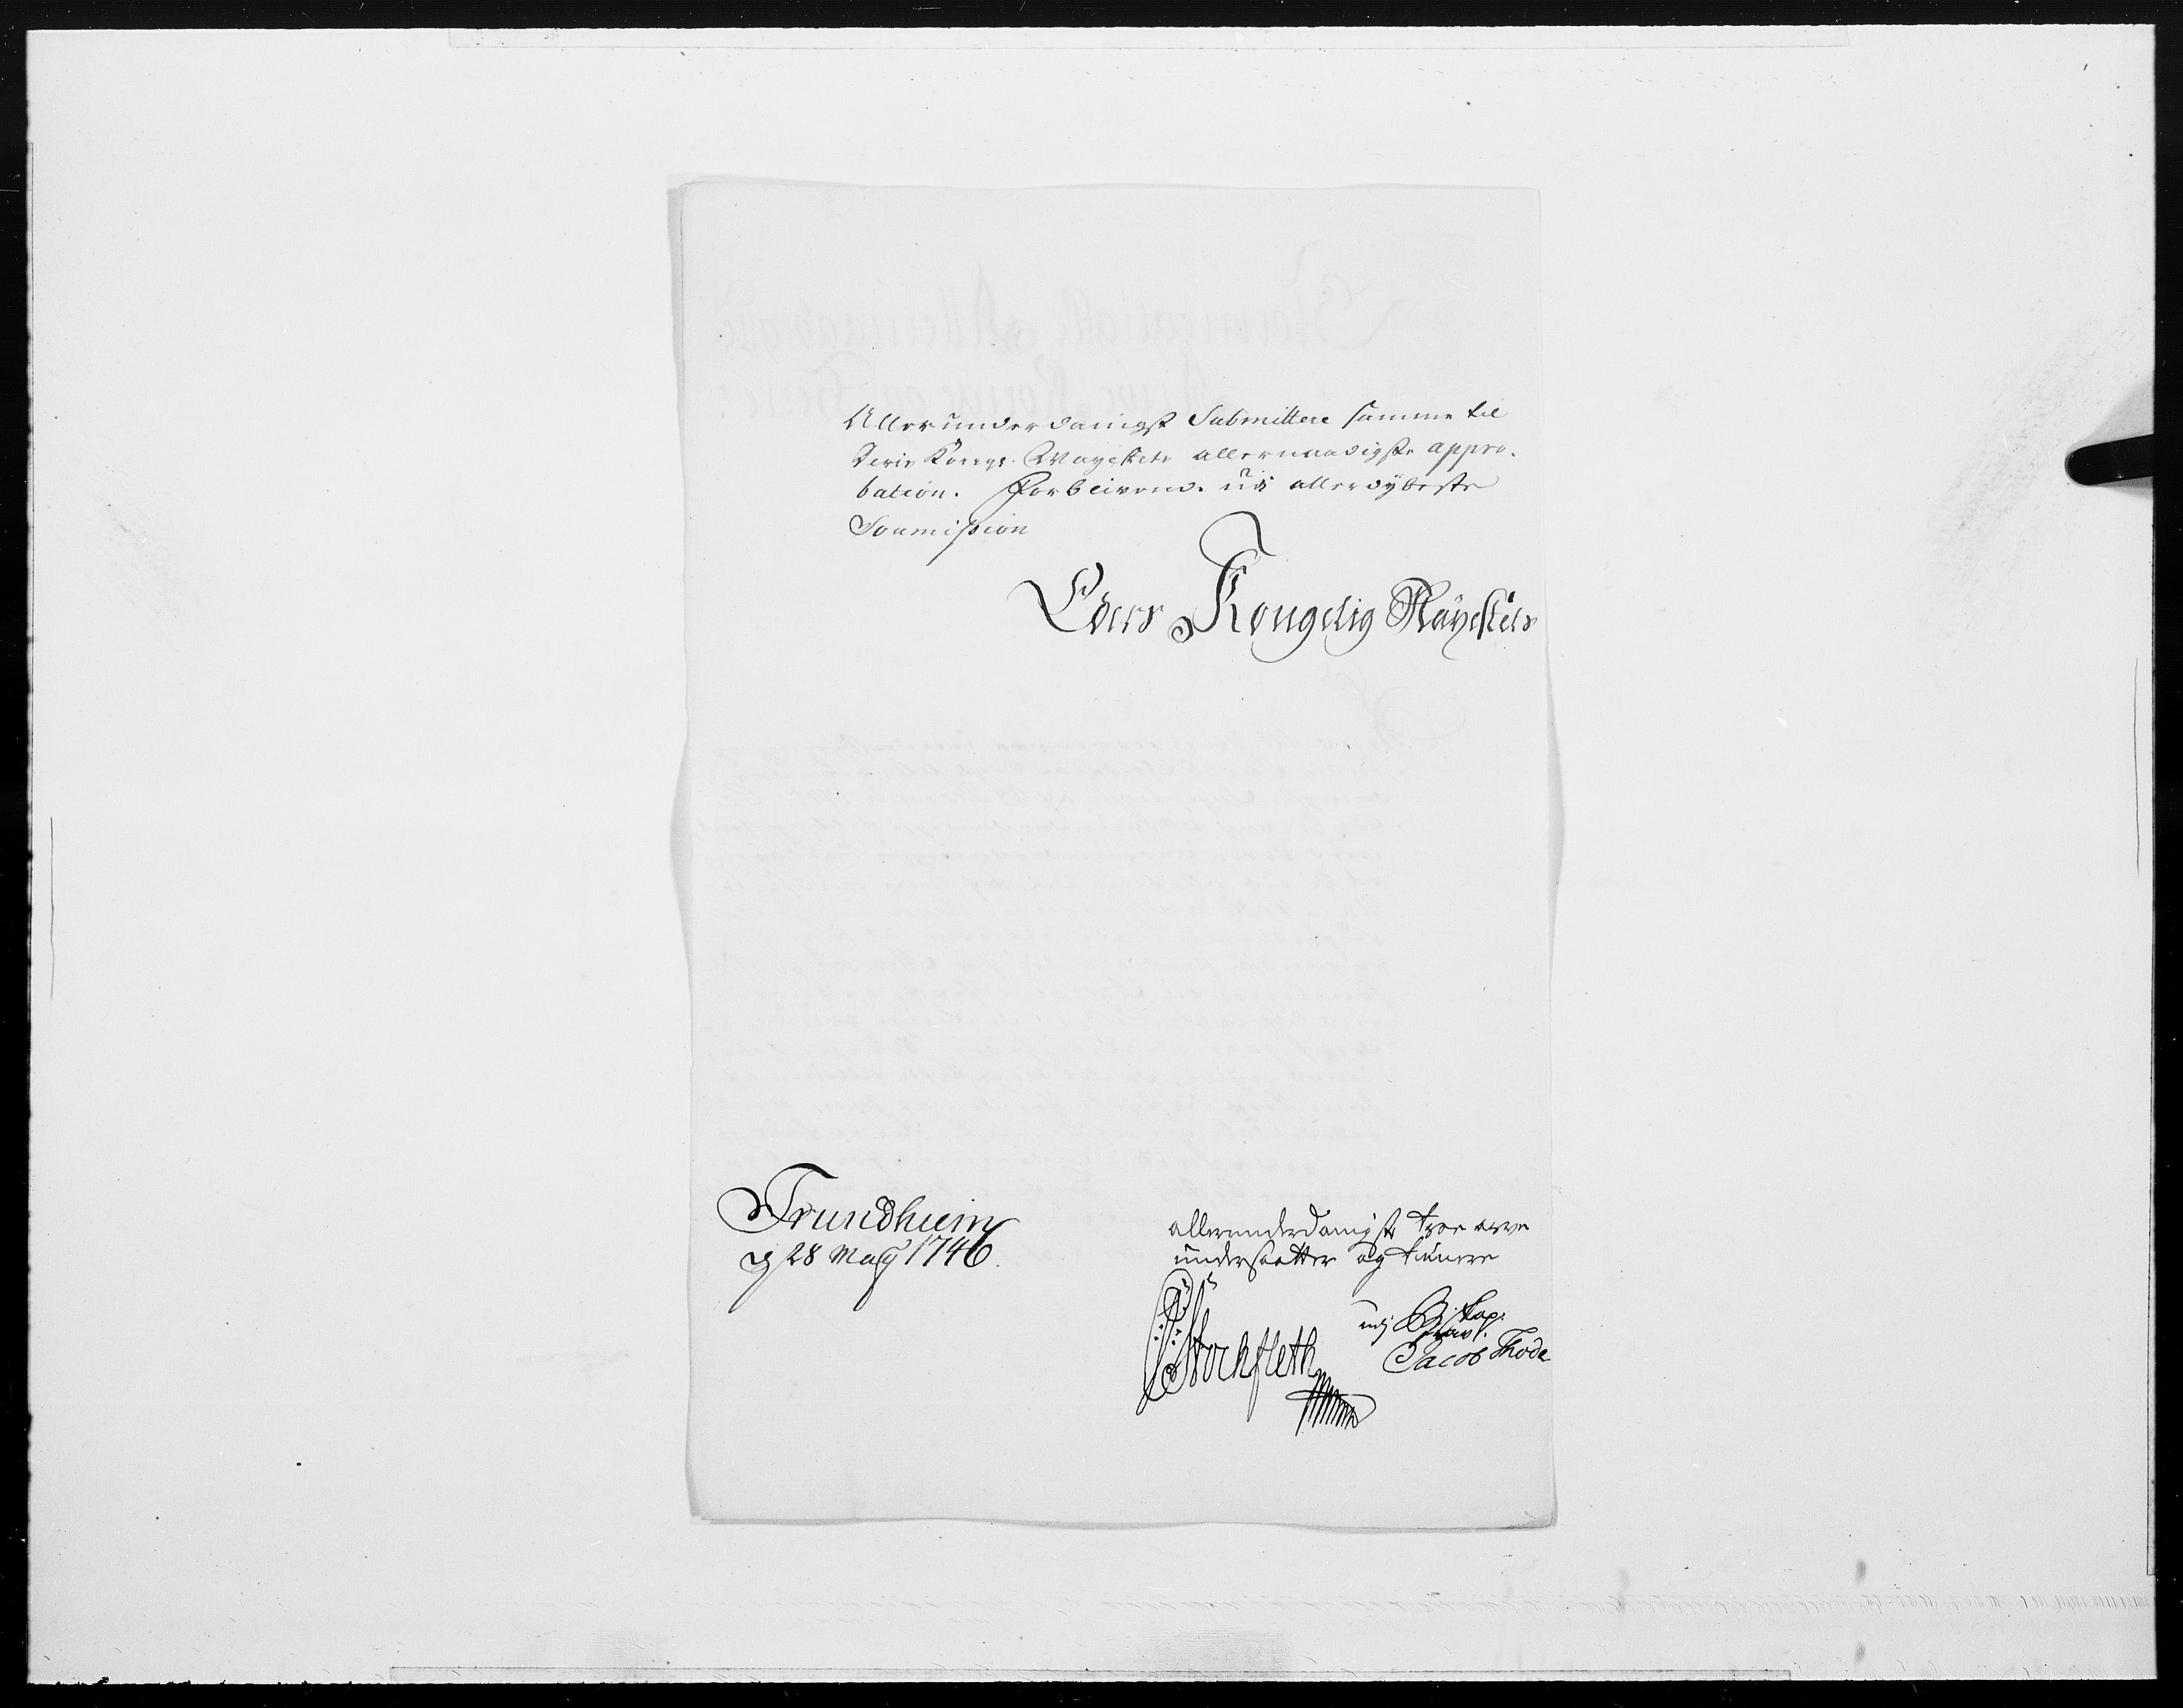 Allerunderdanigst Submittere samme til
Deris Kongl. Mayestets allernaadigste appro-
bation. Forblivende udi allerdybeste
Soumission
Eders Kongelig Mäyestets
Trundhiem
28 Maÿ 1746.
allerunderdanigste troe arve
undersaatter og tienere
Stockfleth
udj Biskop:
Jacob Thode